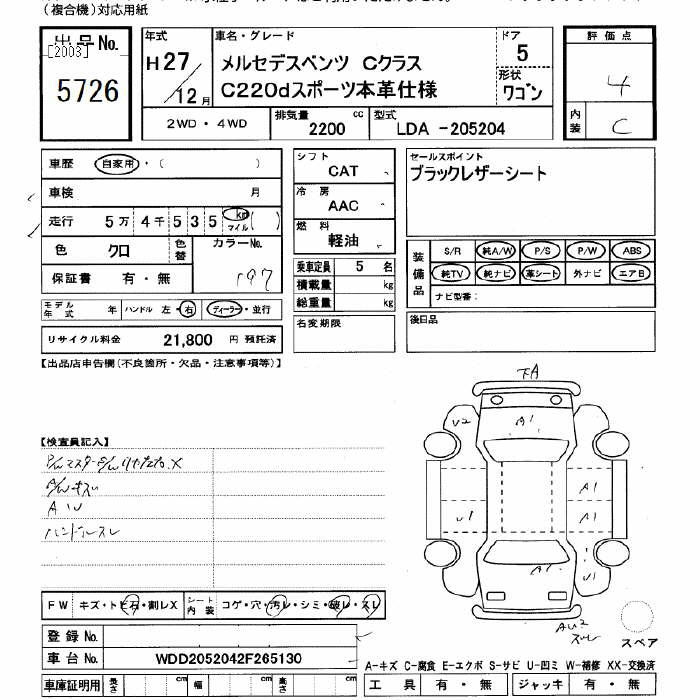 (複合機)対応用紙
出品No.
[2003]
5726
年式
H27/12月
車名・グレード
メルセデスベンツ Cクラス
C220dスポーツ本革仕様
ドア
5
形状
ワゴン
評価点
4
内装
C
2WD・4WD
排気量
2200
cc
型式
LDA -205204
車歴
自家用・( )
車検
月
走行
5万4千535
km
マイル
( )
色
クロ
色替
カラーNo.
197
保証書
有・無
モデル年式
年
ハンドル 左・右
ディーラー・並行
リサイクル料金
21,800
円 預託済
シフト
CAT
冷房
AAC
燃料
軽油
乗車定員
5
名
積載量
kg
総重量
kg
名変期限
セールスポイント
ブラックレザーシート
装備品
S/R
純A/W
P/S
P/W
ABS
純TV
純ナビ
革シート
外ナビ
エアB
ナビ型番:
後日品
【出品店申告欄(不良箇所・欠品・注意事項等)】
下A
U2
A1
A1
U1
A1
A1
U1
AU2
スレ
スペア
【検査員記入】
A/Wキズ
AU
ハンドルスレ
FW
キズ・トビ石・割レX
シート内装
コゲ・穴・汚レ・シミ・破レ・スレ
登録No.
車台No.
WDD2052042F265130
A-キズ C-腐食 E-エクボ S-サビ U-凹ミ W-補修 XX-交換済
車庫証明用
長さ
cm
幅
cm
高さ
cm
工具
有・無
ジャッキ
有・無